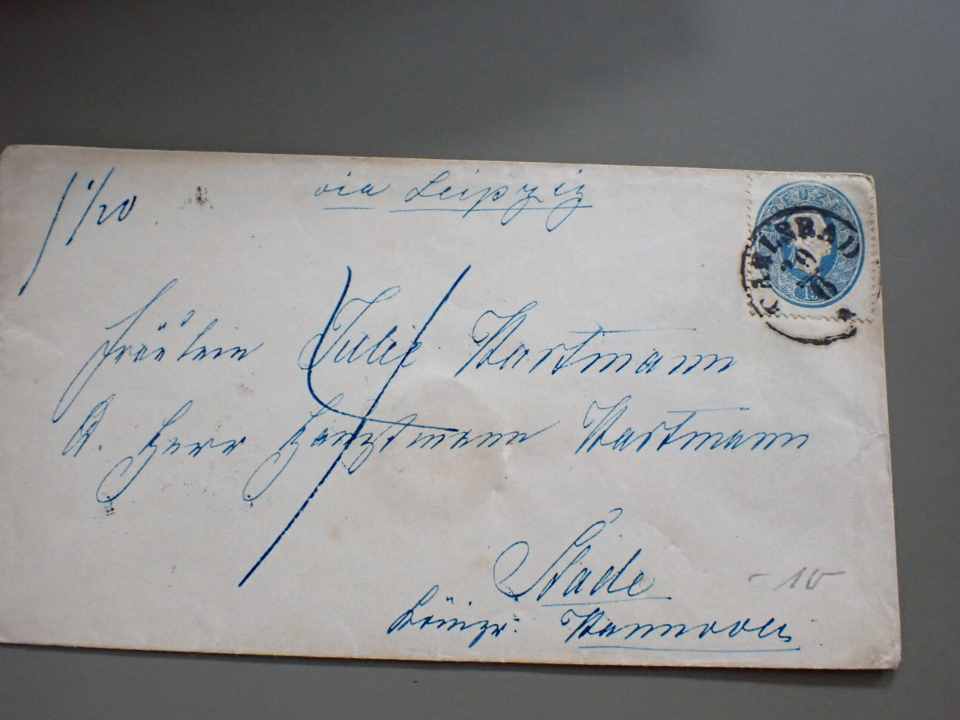 1 1/20
via Leipzig
KREUZER
CARLSBAD
Fräulein Julie Hartmann
A. Herr Hauptmann Hartmann
Stade
Königr: Hannover
- 10